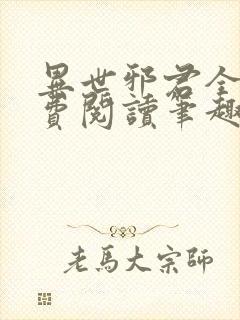 異世邪君全
費閱讀筆趣
老馬大宗師